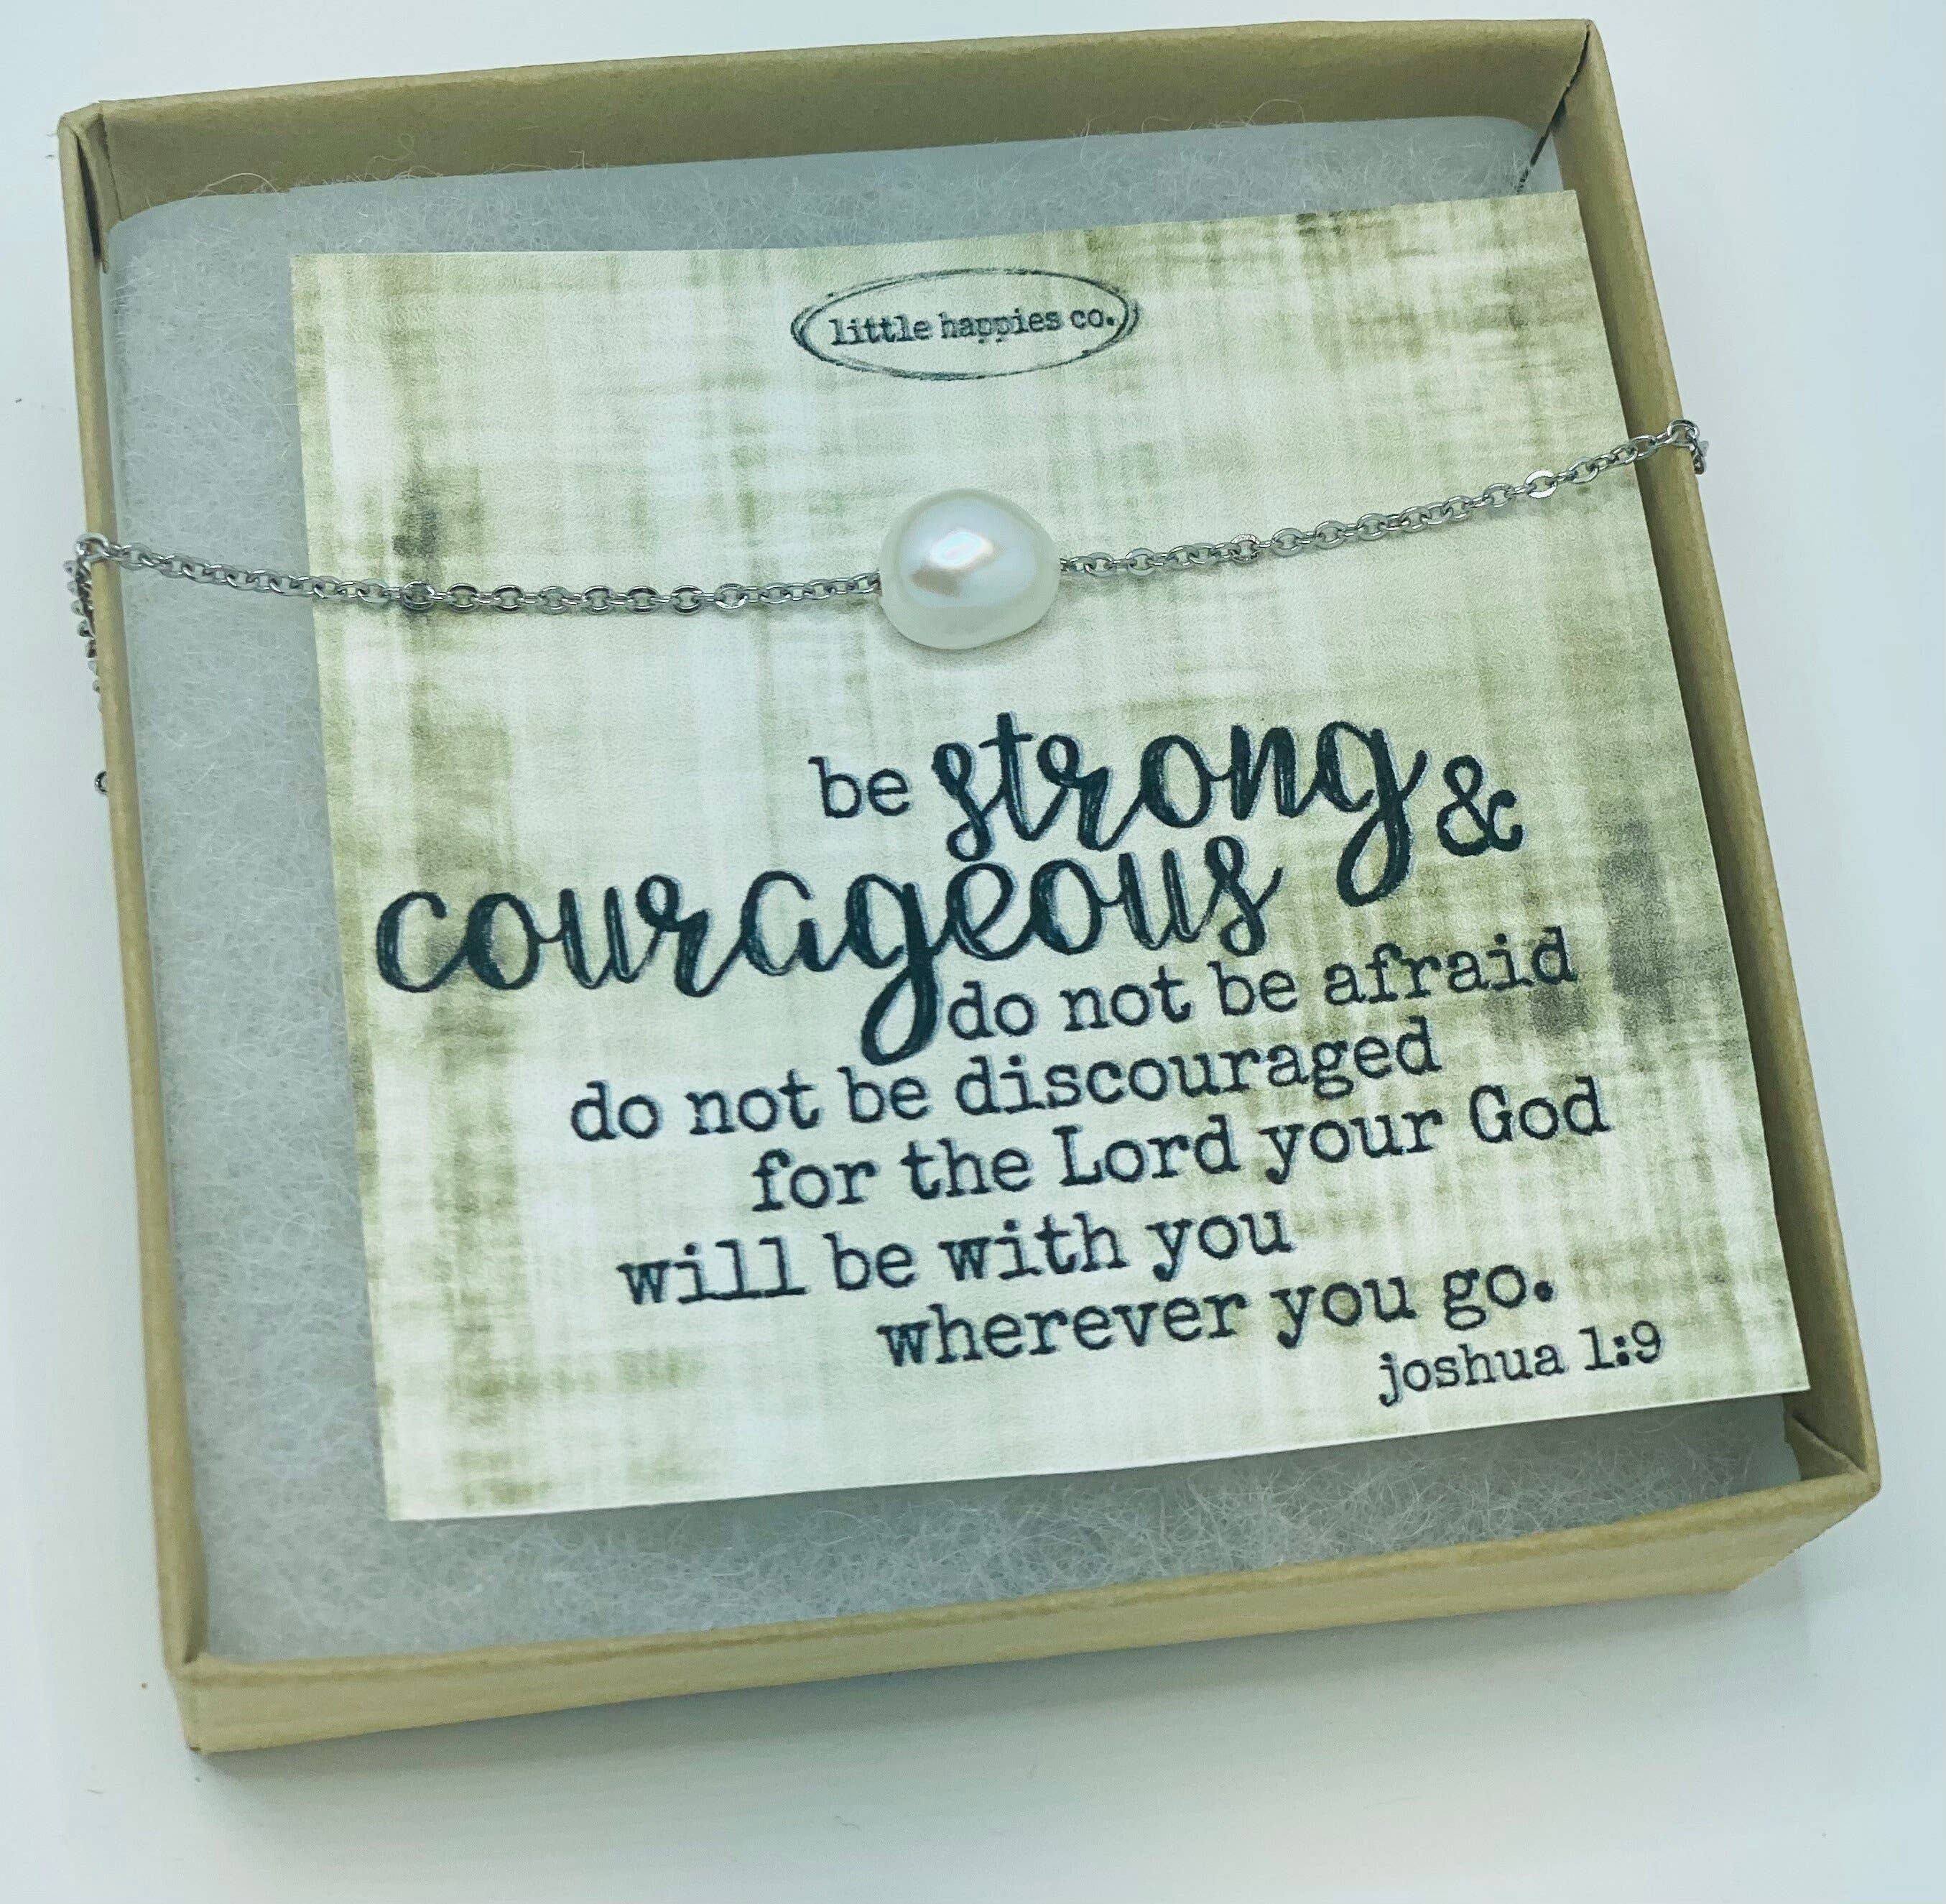 little happies co.
be strong &
courageous
do not be afraid
do not be discouraged
for the Lord your God
will be with you
wherever you go.
joshua 1:9